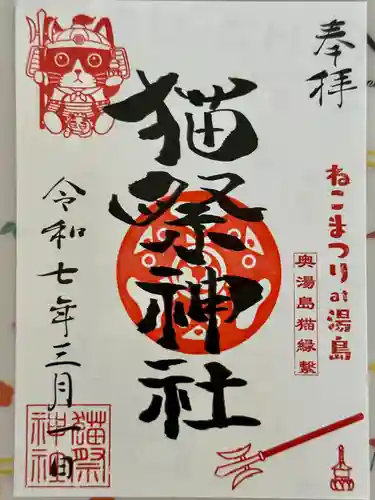 奉拝
ねこまつり at 湯島
奥湯島猫縁繋
猫祭神社
令和七年三月一日
猫祭
神社